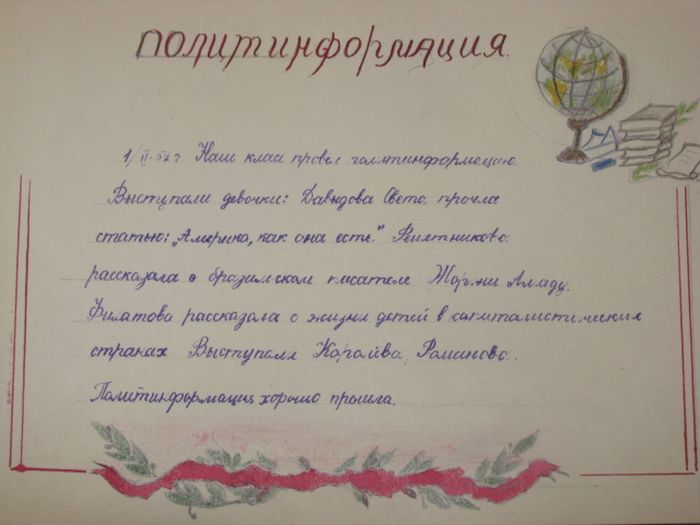 ПОЛИТИНФОРМАЦИЯ.
1/II-52 г Наш класс провел политинформацию.
Выступали девочки: Давыдова Света прочла
статью: „Америка, как она есть." Решетникова
рассказала о бразильском писателе Жоржи Амаду.
Филатова рассказала о жизни детей в капиталистических
странах Выступали Королёва, Романова.
Политинформация хорошо прошла.